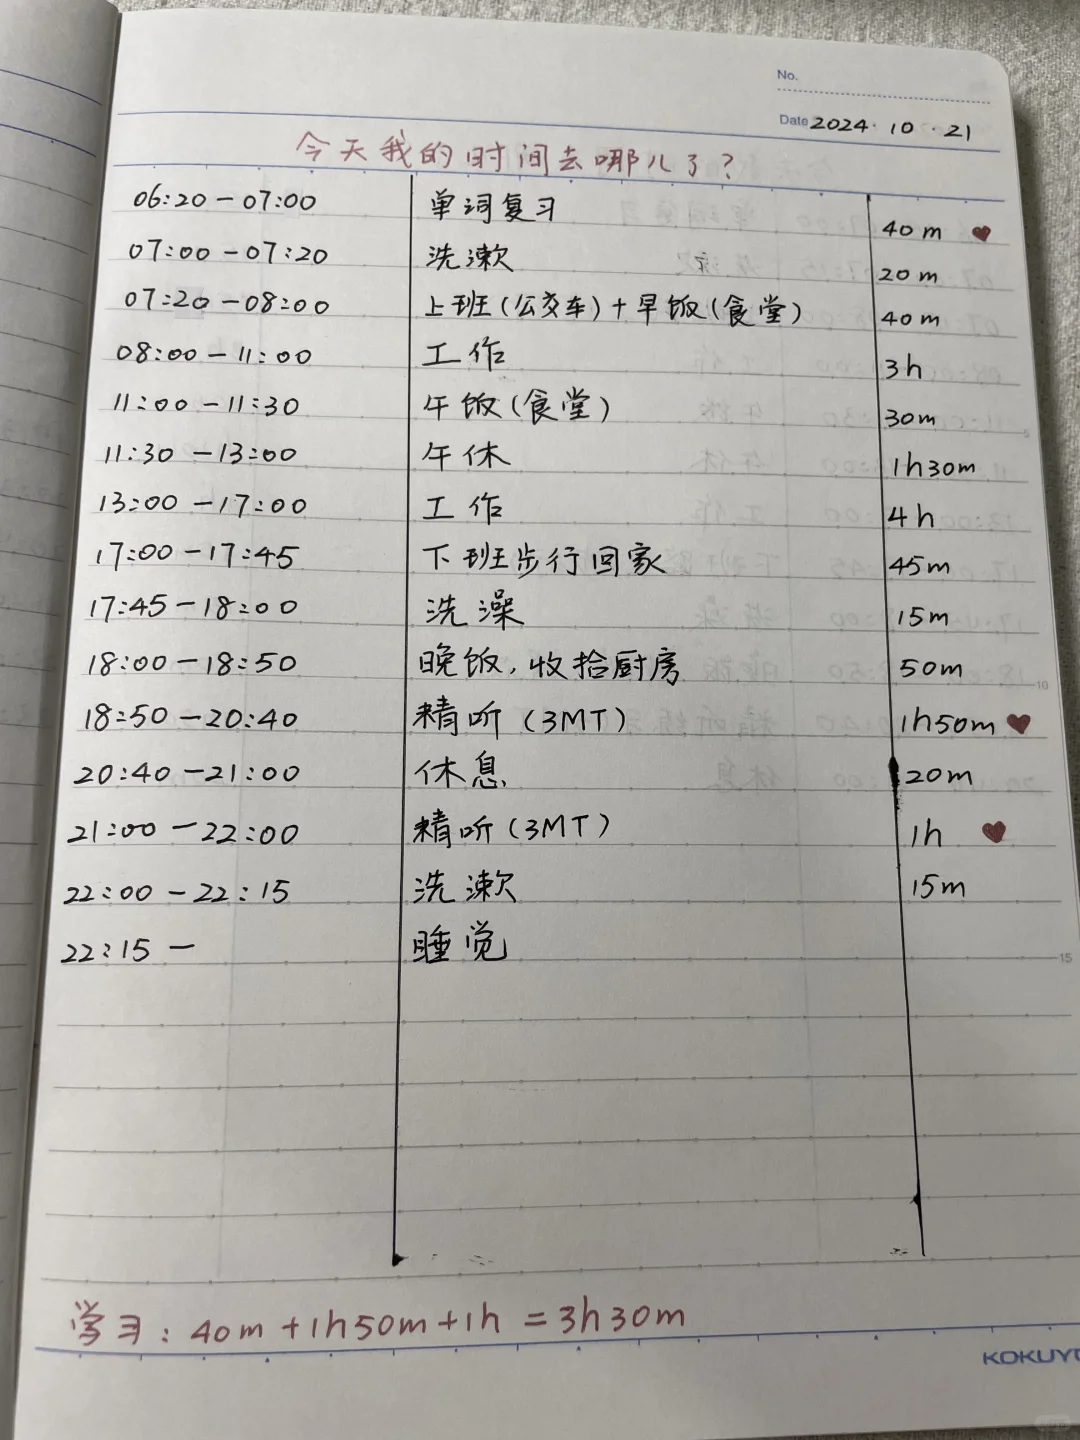 No.
Date 2024.10.21
今天我的时间去哪儿了?
06:20-07:00 单词复习 40m ♥
07:00-07:20 洗漱 20m
07:20-08:00 上班(公交车)+早饭(食堂) 40m
08:00-11:00 工作 3h
11:00-11:30 午饭(食堂) 30m
11:30-13:00 午休 1h30m
13:00-17:00 工作 4h
17:00-17:45 下班步行回家 45m
17:45-18:00 洗澡 15m
18:00-18:50 晚饭,收拾厨房 50m
18:50-20:40 精听(3MT) 1h50m ♥
20:40-21:00 休息 20m
21:00-22:00 精听(3MT) 1h ♥
22:00-22:15 洗漱 15m
22:15- 睡觉
10
15
学习:40m+1h50m+1h=3h30m
KOKUYO